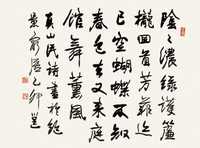 陰々濃綠護簾
櫳回首芳菲迹
已空蝴蝶不知
春色去又來庭
館舞薰風
真山民詩書於
乙卯